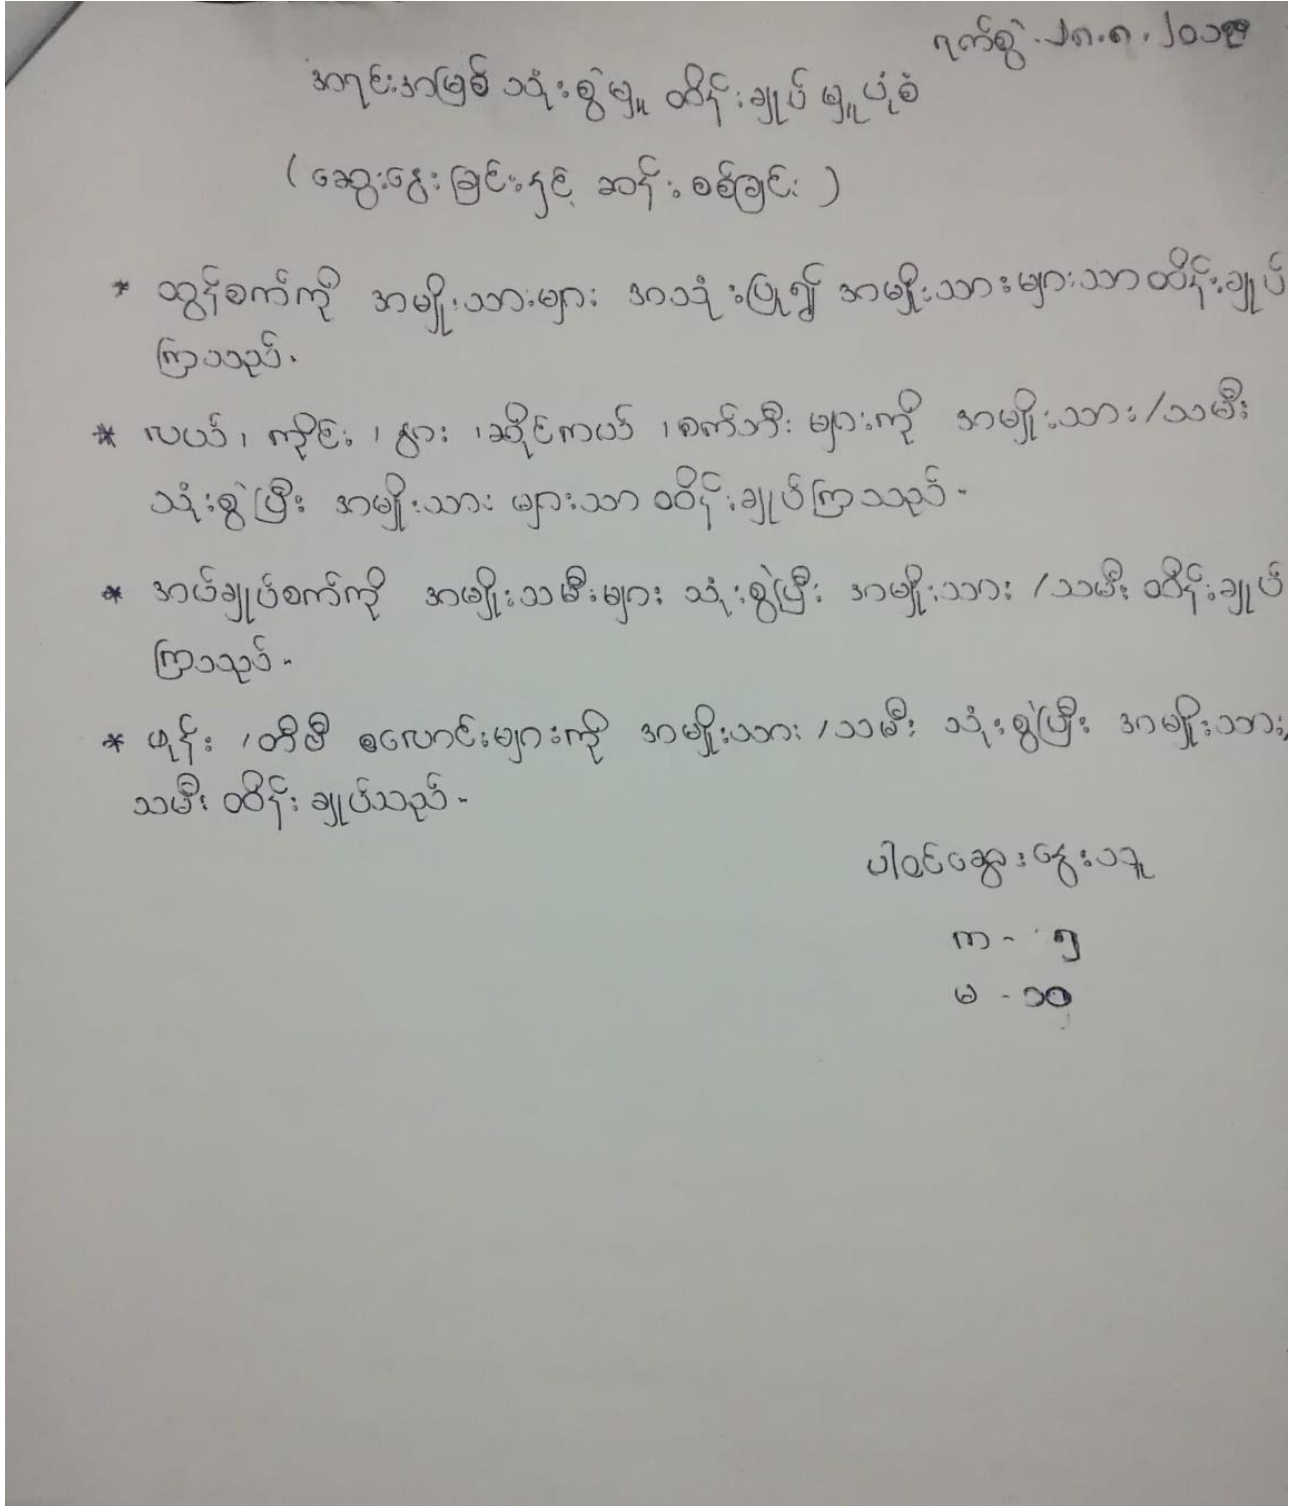 ရက်စွဲ.၂၈.၈.၂၀၁၉
အရင်းအမြစ် သုံးစွဲမှု ထိန်းချုပ် မှုပုံစံ
(ဆွေးနွေးခြင်းနှင့် ဆန်းစစ်ခြင်း)
* ထွန်စက်ကို အမျိုးသားများ အသုံးပြု၍ အမျိုးသားများသာ ထိန်းချုပ်
ကြသည်.
* လယ်၊ ကိုင်း၊ နွား၊ ဆိုင်ကယ်၊ စက်ဘီး များကို အမျိုးသား/သမီး
သုံးစွဲပြီး အမျိုးသား များသာ ထိန်းချုပ်ကြသည်-
* အပ်ချုပ်စက်ကို အမျိုးသမီးများ သုံးစွဲပြီး အမျိုးသား /သမီး ထိန်းချုပ်
ကြသည်-
* ဖုန်း ၊တီဗီ စလောင်းများကို အမျိုးသား /သမီး သုံးစွဲပြီး အမျိုးသား/
သမီး ထိန်းချုပ်သည်-
ပါဝင်ဆွေးနွေးသူ
ကာ - ၅
မ - ၁၀